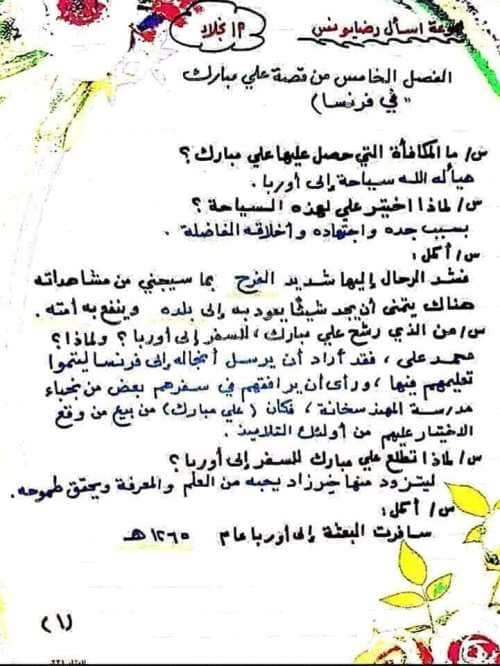 اسأل رضا يونس
الفصل الخامس من قصة علي مبارك
"في فرنسا)
س/ ما المكافأة التي حصل عليها علي مبارك ؟
هيأ له الله سياحة إلى أوربا .
س/ لماذا اختير علي لهذه السياحة ؟
بسبب جده واجتهاده وأخلاقه الفاضلة .
س/ أكمل :
فشد الرحال إليها شديد الفرح بما سيجني من مشاهداته
هناك يتمنى أن يجد شيئًا يعود به إلى بلده وينفع به أمته .
س/ من الذي رشح علي مبارك ، للسفر إلى أوربا ؟ ولماذا ؟
محمد علي ، فقد أراد أن يرسل أنجاله إلى فرنسا ليتموا
تعليمهم فيها ، ورأى أن يرافقهم في سفرهم بعض من نجباء
مدرسة المهندسخانة ، فكان ( علي مبارك ) من بين من وقع
الاختيار عليهم من أولئك التلاميذ .
س/ لماذا تطلع علي مبارك للسفر إلى أوربا ؟
ليتزود منها خير زاد يحبه من العلم والمعرفة ويحقق طموحه .
س/ أكمل :
سافرت البعثة إلى أوربا عام ١٢٦٥ هـ
(١)